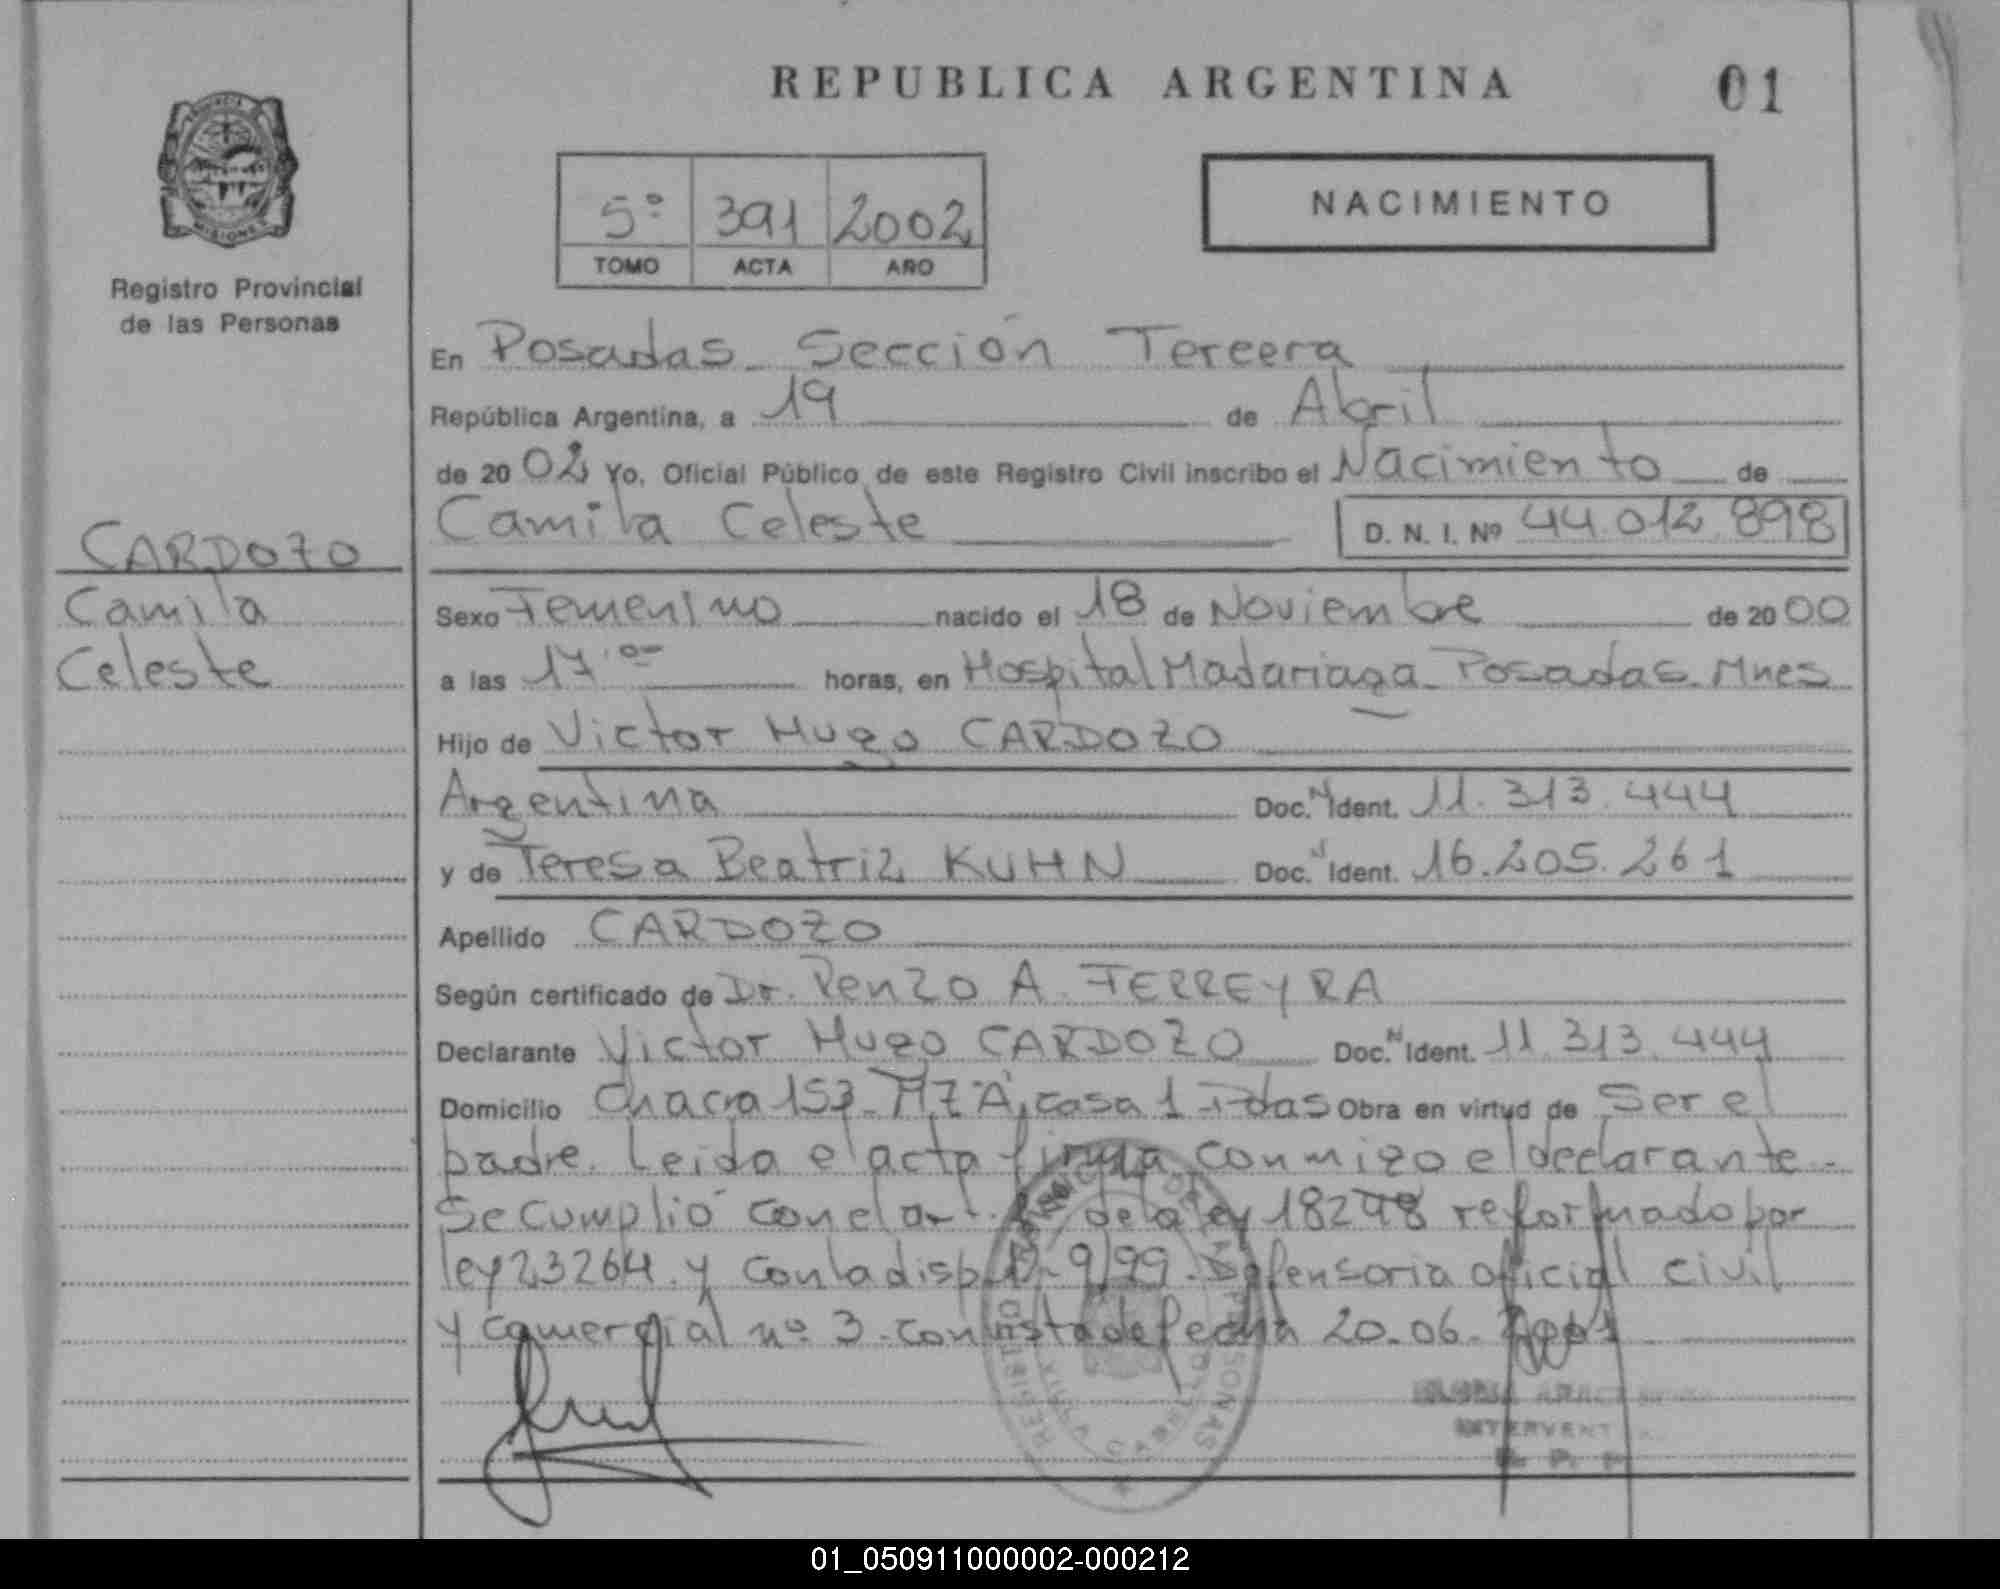 REPUBLICA ARGENTINA
01
PROVINCIA
MISIONES
Registro Provincial
de las Personas
5º 391 2002
TOMO ACTA AÑO
NACIMIENTO
En Posadas Sección Tercera
República Argentina, a 19 de Abril
de 2002 Yo, Oficial Público de este Registro Civil inscribo el Nacimiento de
Camila Celeste D. N. I. Nº 44.012.898
CARDOZO
Camila
Celeste
Sexo Femenino nacido el 18 de Noviembre de 2000
a las 17.00 horas, en Hospital Madariaga Posadas Mnes
Hijo de Victor Hugo CARDOZO
Argentina Doc. N Ident. 11.313.444
y de Teresa Beatriz KUHN Doc. N Ident. 16.205.261
Apellido CARDOZO
Según certificado de Dr. Renzo A. FERREYRA
Declarante Victor Hugo CARDOZO Doc. N Ident. 11.313.444
Domicilio Chacra 153 MZ "A", casa 1 - Pdas Obra en virtud de Ser el
padre. Leida el acta firma conmigo el declarante.
Se cumplió con el art. de la ley 18248 reformado por
ley 23264 y con la disp. 9/99. Defensoria oficial civil
y comercial nº 3 con vista de fecha 20.06.2001
REGISTRO DE LAS PERSONAS
INTERVENT
R. P. P
01_050911000002-000212